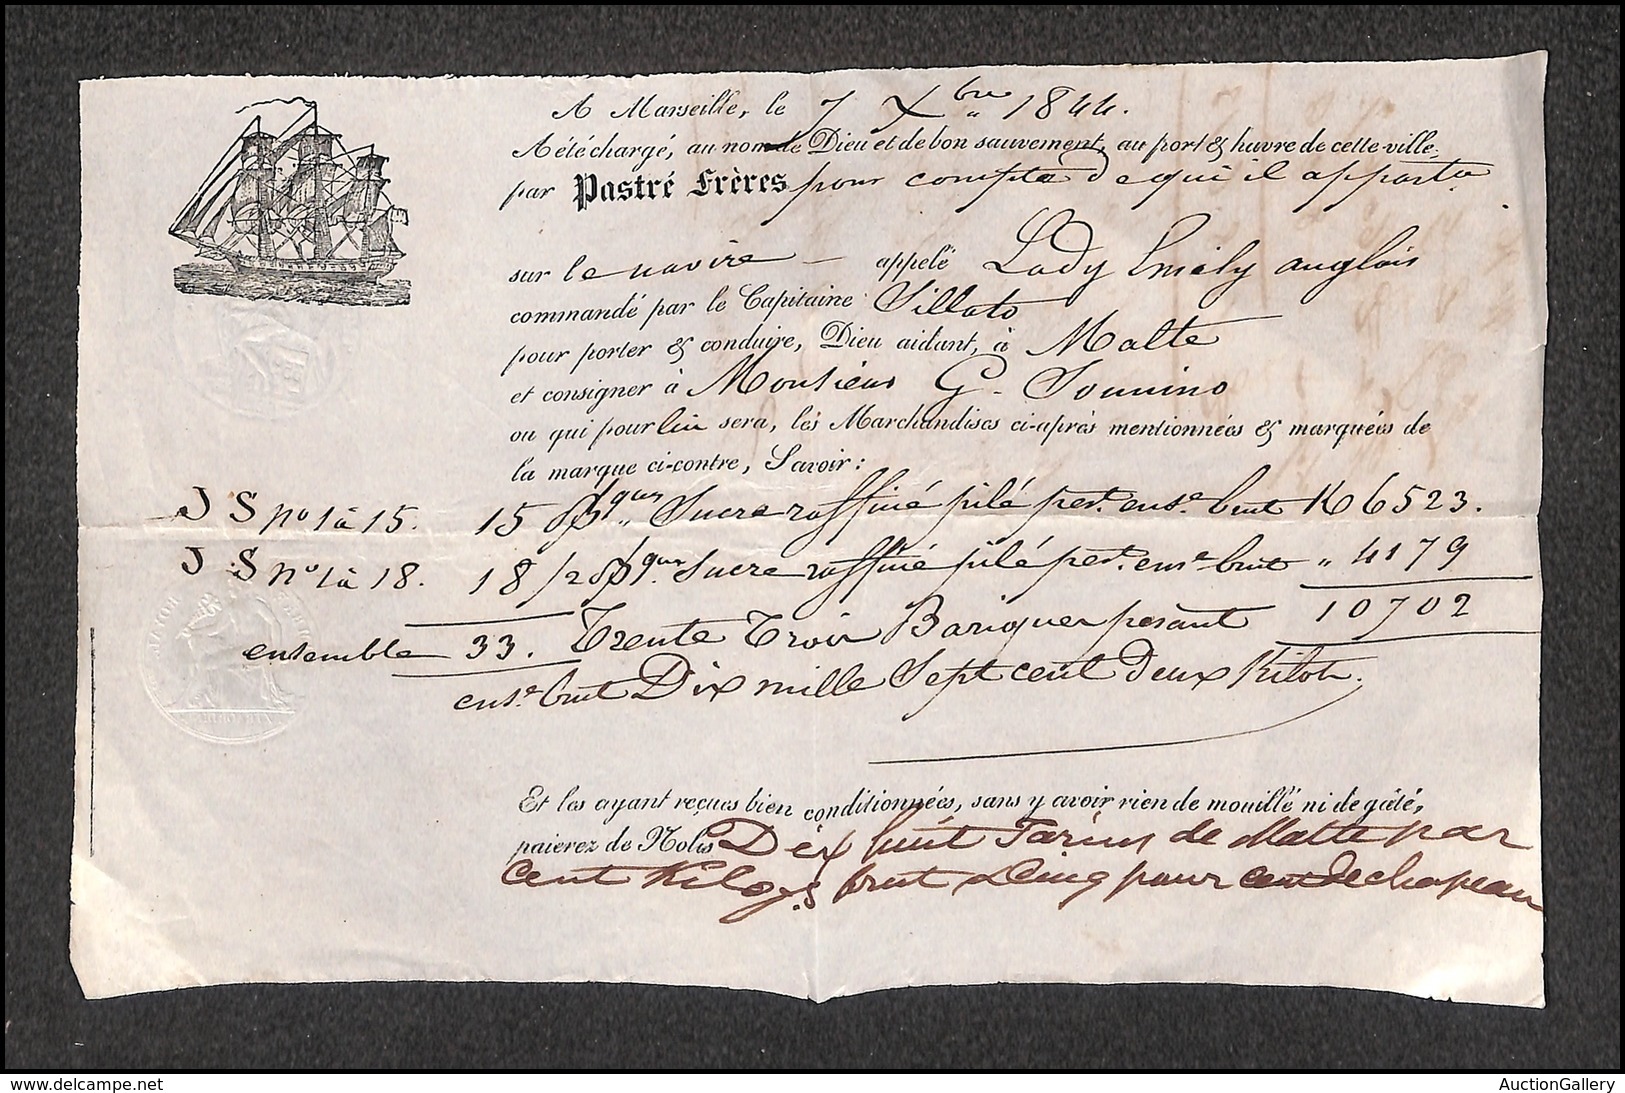 A Marseille, le 7 Xbre 1844.
A été chargé, au nom de Dieu et de bon sauvement, au port & havre de cette ville,
par Pastré Frères pour compte de qui il appartª
sur le navire — appelé Lady Emily anglais
commandé par le Capitaine Sillato
pour porter & conduire, Dieu aidant, à Malte
et consigner à Monsieur G. Sonnino
ou qui pour lui sera, les Marchandises ci-après mentionnées & marquées de
la marque ci-contre, Savoir:
J S nº 1 à 15. 15 Bques Sucre raffiné pilé pest. ense. brut K 6523.
J S nº 1 à 18. 18/2 Bques Sucre raffiné pilé pest. ense. brut " 4179
ensemble 33. Trente Trois Bariques pesant 10702
ense. brut Dix mille Sept cent Deux Kilos.
Et les ayant reçues bien conditionnées, sans y avoir rien de mouillé ni de gâté,
paierez de Nolis Dix huit Tarins de Malte par
cent Kilogs brut & Cinq pour cent de chapeau
delcampe.net
AuctionGallery